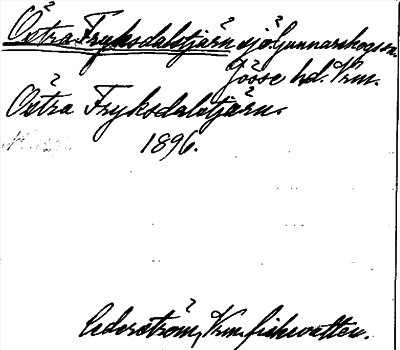 Östra Fryksdalstjärn sjö Gunnarskogs sn.
Jösse hd. Vrm.
Östra Fryksdalstjärn.
1896.
Cederström, Vrm. fiskevatten.